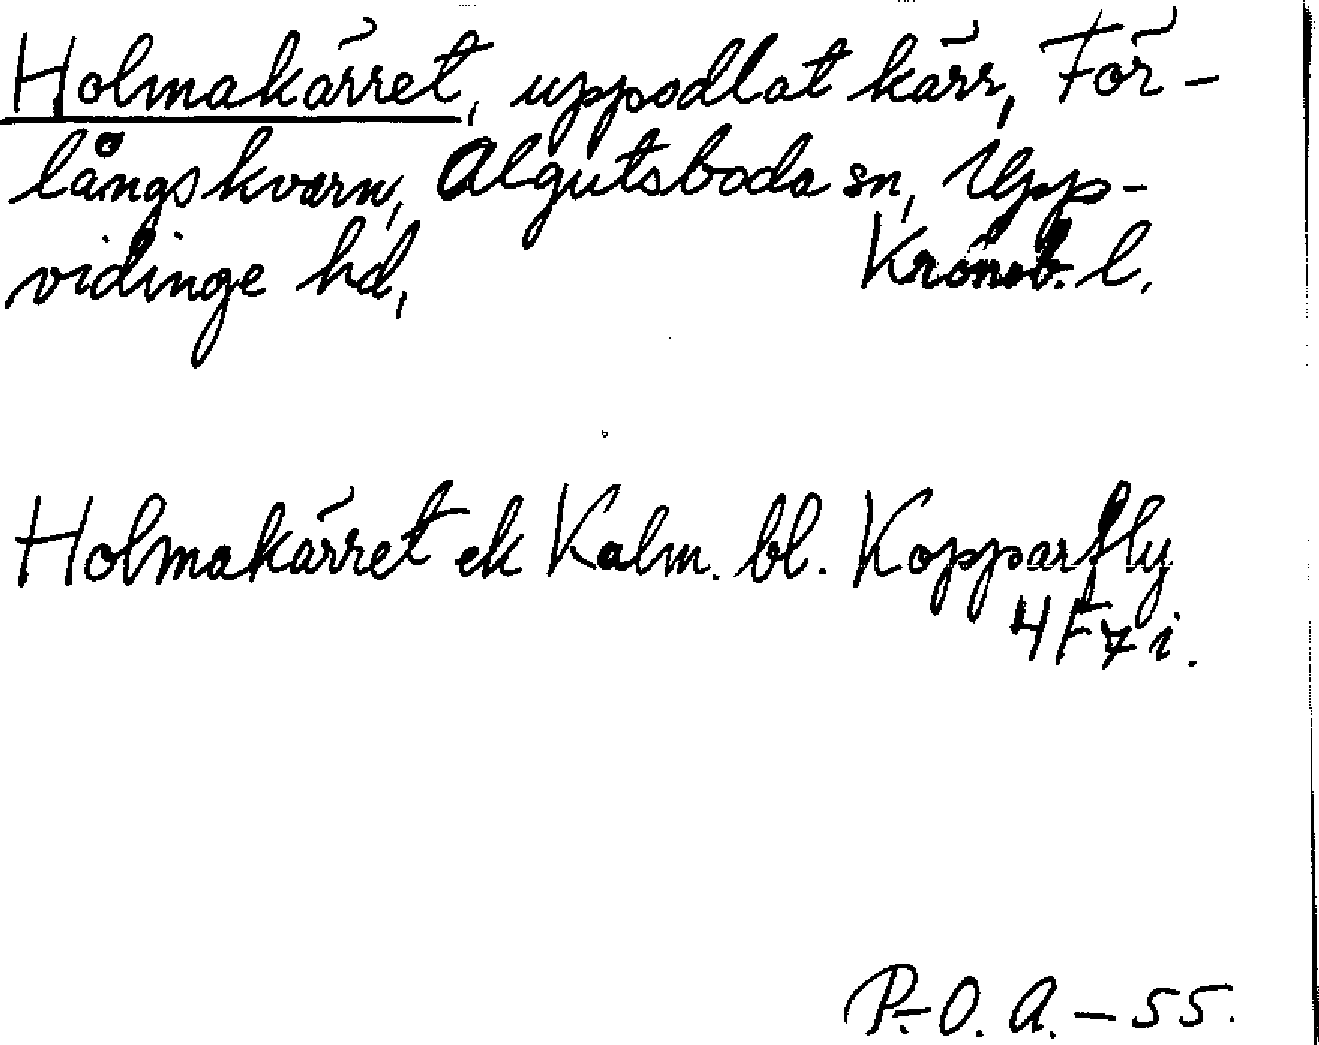 Holmakärret, uppodlat kärr, För-
långskvarn, Algutsboda sn, Upp-
vidinge hd, Kronob. l.
Holmakärret ek Kalm. bl. Kopparfly
4F7i.
P.-O. A. – 55.